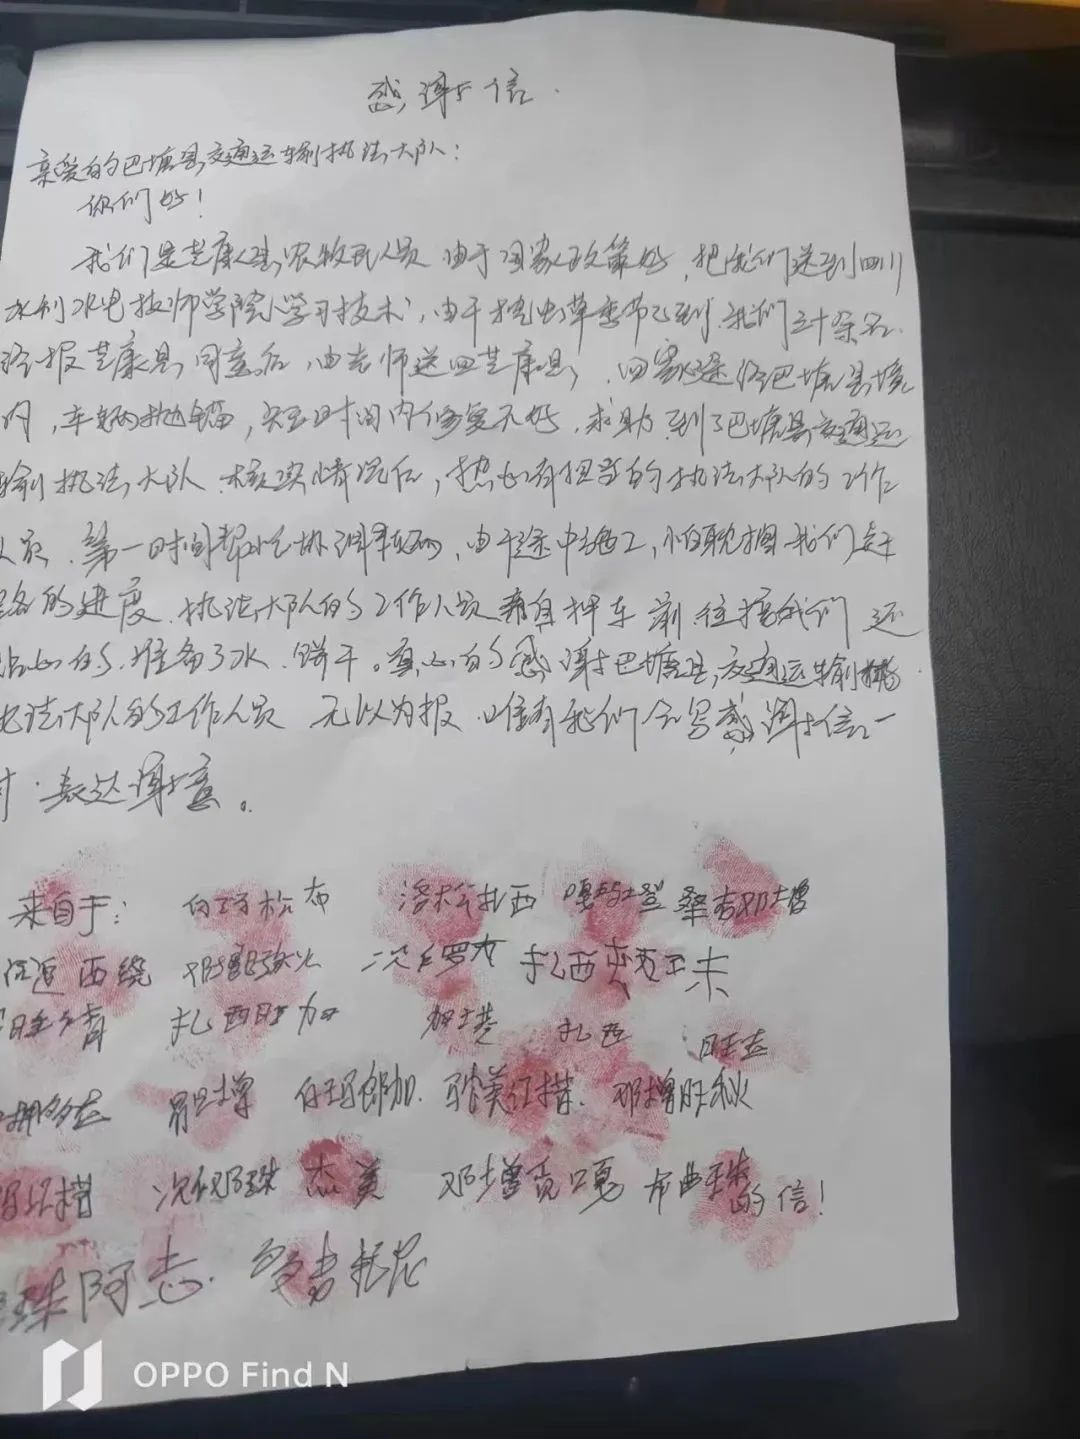 感谢信.
亲爱的巴塘县交通运输执法大队:
你们好!
我们是芒康县农牧民人员 由于国家政策好,把我们送到四川
水利水电技师学院学习技术,由于挖虫草季节已到.我们三十余名.
经报芒康县,同意后,由老师送回芒康县,.回家途经巴塘县境
内,车辆抛锚,短时间内修复不好,求助到了巴塘县交通运
输执法大队.核实情况后,热心有担当的执法大队的工作
人员.第一时间帮忙协调车辆,由于途中施工,怕耽搁我们赶
路的进度.执法大队的工作人员亲自押车前往接我们 还
贴心的.准备了水.饼干。真心的感谢巴塘县交通运输
执法大队的工作人员 无以为报.唯有我们会写感谢信一
封.表达谢意。
来自于: 白玛松布 洛松扎西 嘎玛登 桑吉邓增
西绕 次仁罗布 扎西
扎西旺加 扎西 旺志
增 白玛郎加. 邓增旺秋
措 次仁邓珠 杰美 邓增贡嘎 布曲 的信!
珠阿志.
OPPO Find N